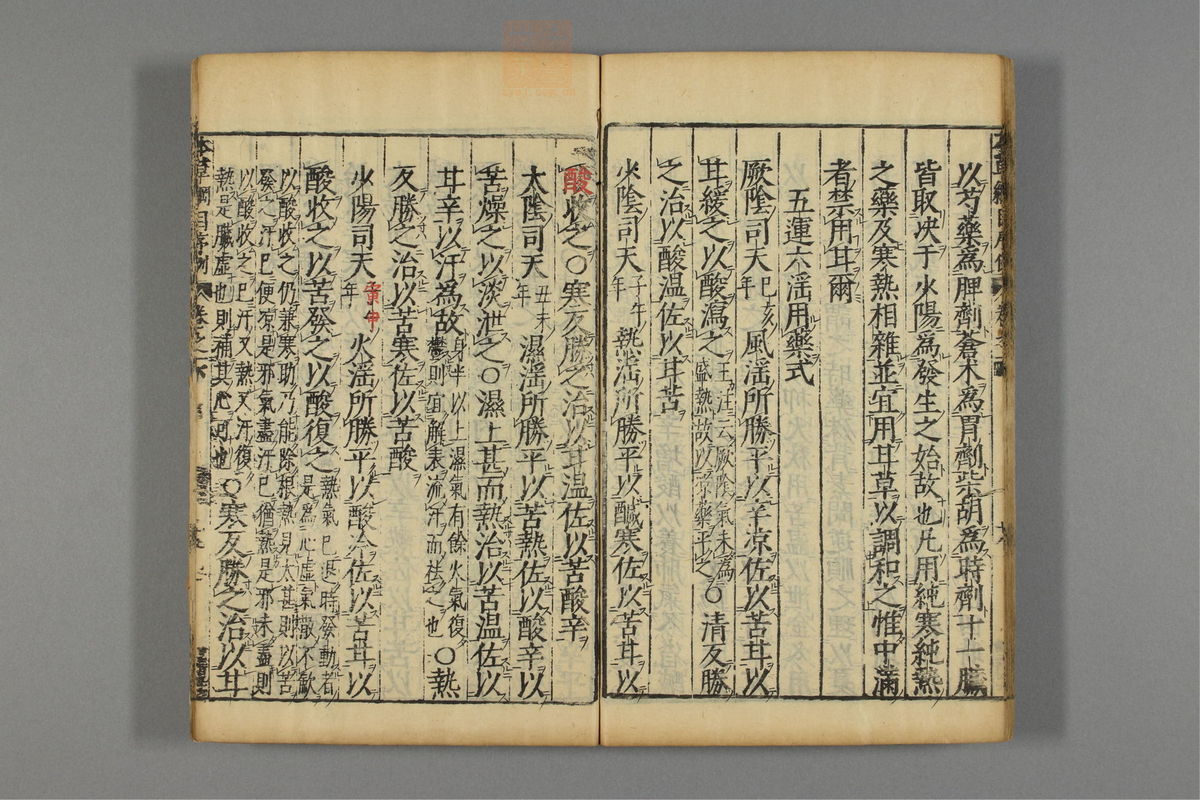 以芍藥為脾劑蒼木為胃劑柴胡為時劑十一臟
皆取决于少陽為發生之始故也凡用純寒純熱
之藥及寒熱相雜並宜用甘草以調和之惟中滿
者禁用甘爾
五運六淫用藥式
厥陰司天巳亥年風淫所勝平以辛凉佐以苦甘以
甘緩之以酸瀉之王注云厥陰氣未為盛熱故以凉藥平之○清反勝
之治以酸温佐以甘苦
少陰司天子午年熱淫所勝平以鹹寒佐以苦甘以
酸收之○寒反勝之治以甘温佐以苦酸辛
太陰司天丑未年濕淫所勝平以苦熱佐以酸辛以
苦燥之以淡泄之○濕上甚而熱治以苦温佐以
甘辛以汗為故身半以上濕氣有餘火氣復鬱則宜解表流汗而祛之也○熱
反勝之治以苦寒佐以苦酸
少陽司天寅申年火淫所勝平以酸冷佐以苦甘以
酸收之以苦發之以酸復之熱氣已退時發動者是為心虛氣散不歛
以酸收之仍兼寒助乃能除根熱見太甚則以苦
發之汗已便凉是邪氣盡汗已猶熱是邪未盡則
以酸收之已汗又熱又汗復
熱是臟虛也則補其心可也○寒反勝之治以甘
本草綱目序例 卷之